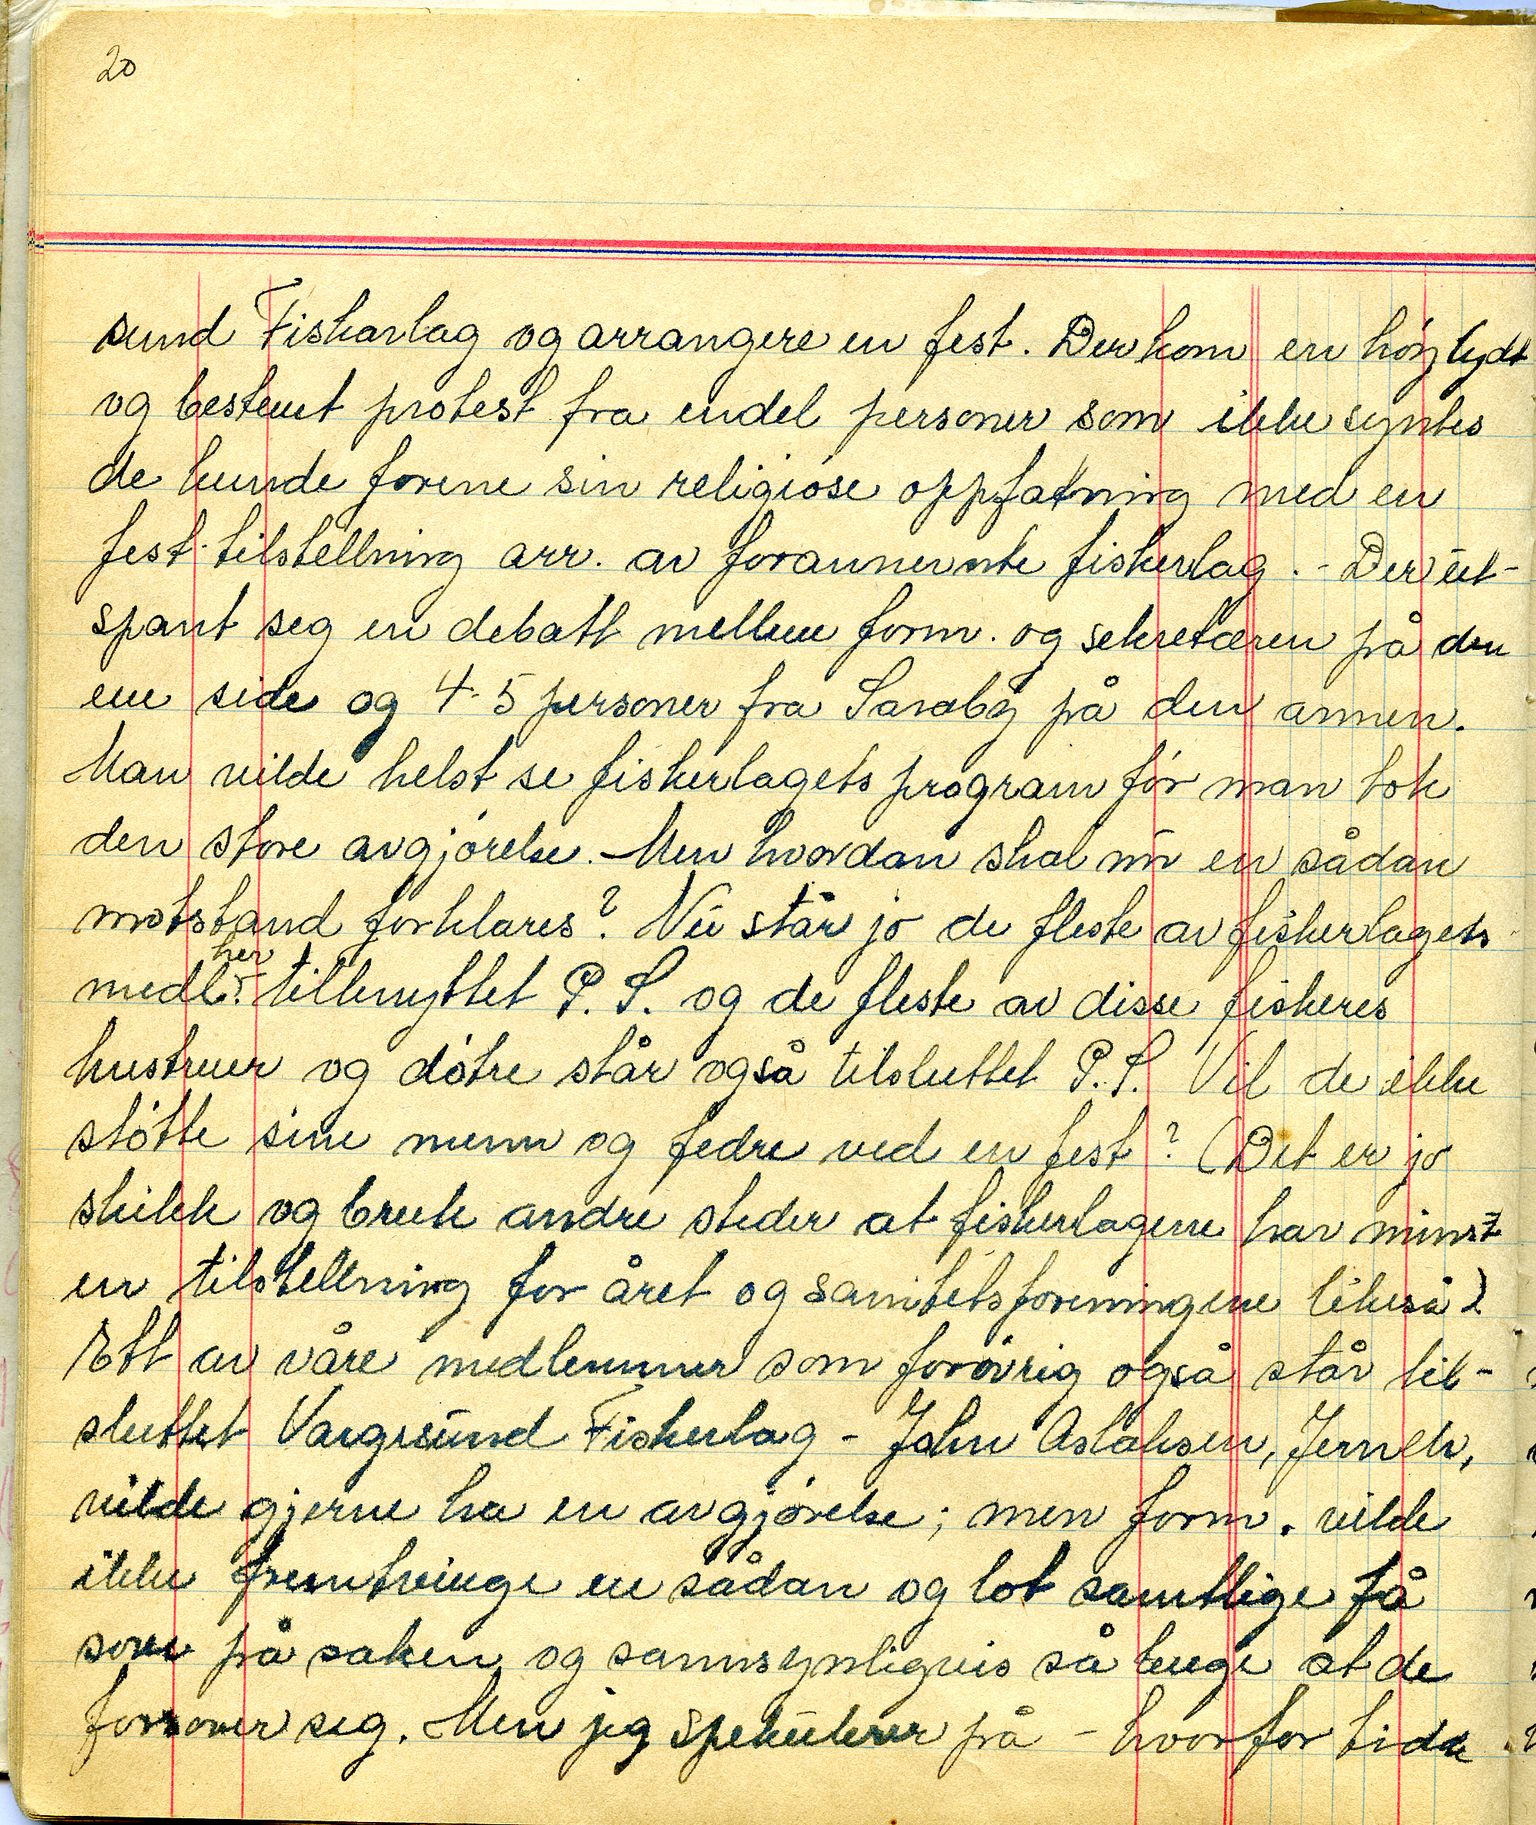 20
sund Fiskarlag og arrangere en fest. Der kom en höylydt
og bestemt protest fra endel personer som ikke syntes
de kunde forene sin religiöse oppfatning med en
fest-tilstellning arr. av forannevnte fiskerlag. - Der ut-
spant seg en debatt mellem form. og sekretæren på den
ene side og 4-5 personer fra Saraby på den annen.
Man vilde helst se fiskerlagets program för man tok
den store avgjörelse. - Men hvordan skal nu en sådan
motstand forklares? Nu står jo de fleste av fiskerlagets
her
medl. tilknyttet P. S. og de fleste av disse fiskeres
hustruer og dötre står også tilsluttet P. S. Vil de ikke
stötte sine menn og fedre ved en fest? (Det er jo
skikk og bruk andre steder at fiskerlagene har minst
en tilstellning for året og sanitetsforeningene likeså).
Ett av våre medlemmer som forövrig også står til-
sluttet Vargsund Fiskerlag - John Aslaksen, Jernelv,
vilde gjerne ha en avgjörelse; men form. vilde
ikke fremtvinge en sådan og lot samtlige få
sove på saken og sannsynligvis så lenge at de
forsover seg. Men jeg spekulerer på - hvorfor tidde